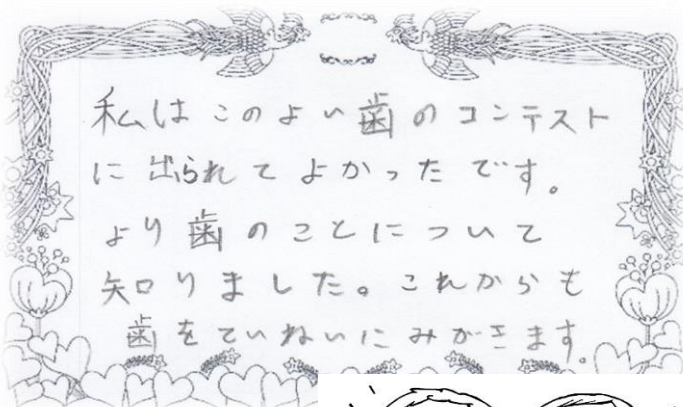 私はこのよい歯のコンテスト
に出られてよかったです。
より歯のことについて
知りました。これからも
歯をていねいにみがきます。